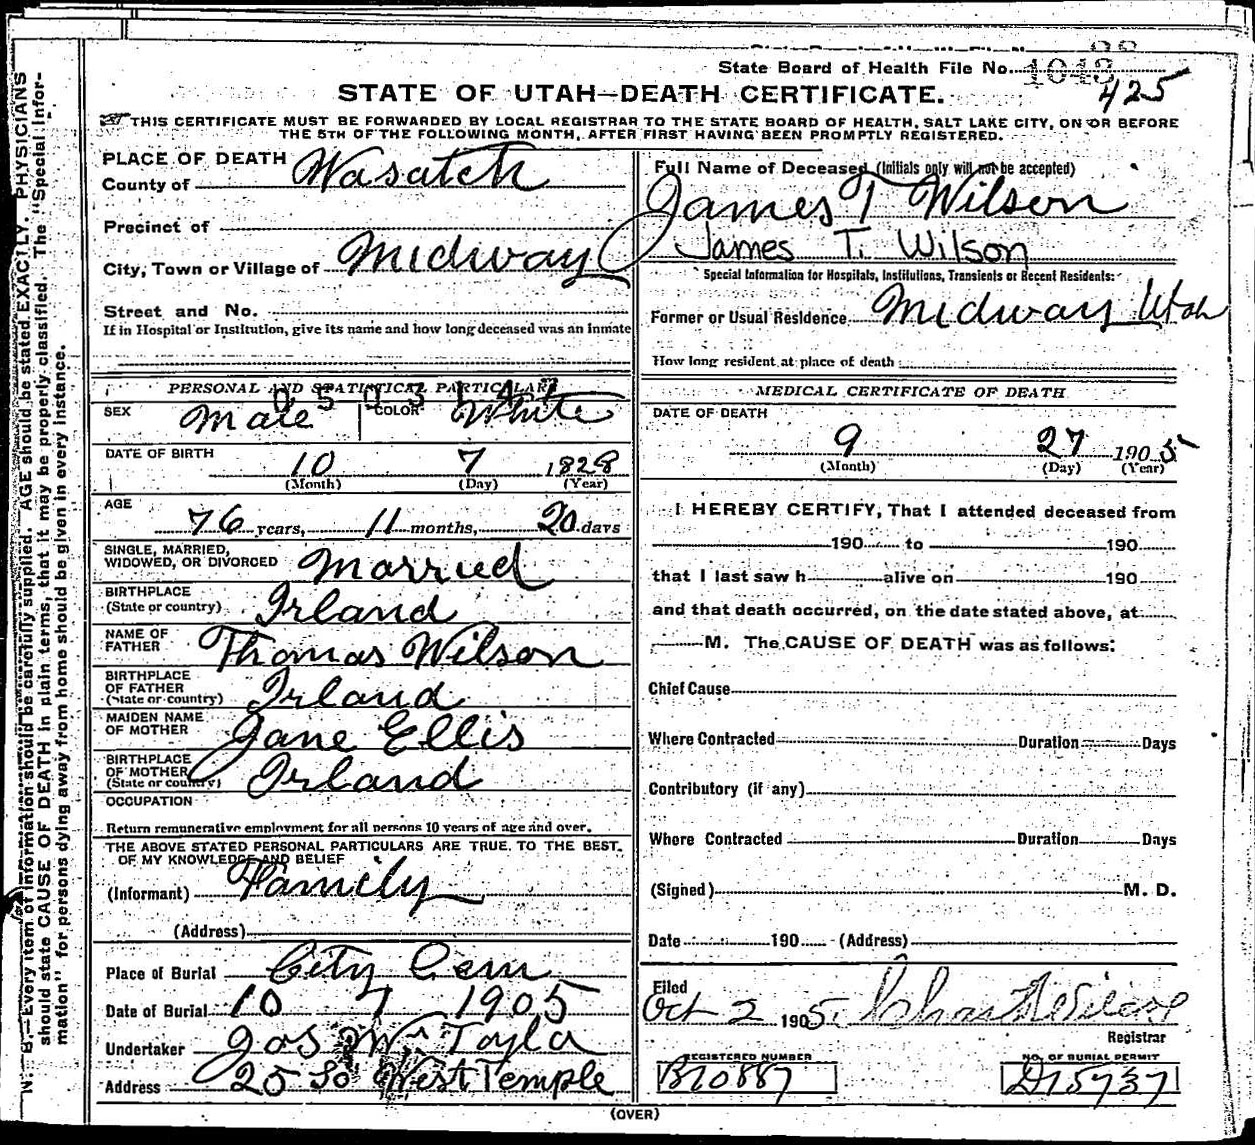 State Board of Health File No. 1043
425
STATE OF UTAH—DEATH CERTIFICATE.
THIS CERTIFICATE MUST BE FORWARDED BY LOCAL REGISTRAR TO THE STATE BOARD OF HEALTH, SALT LAKE CITY, ON OR BEFORE
THE 5TH OF THE FOLLOWING MONTH, AFTER FIRST HAVING BEEN PROMPTLY REGISTERED.
PLACE OF DEATH
County of Wasatch
Precinct of
City, Town or Village of Midway
Street and No.
If in Hospital or Institution, give its name and how long deceased was an inmate
PERSONAL AND STATISTICAL PARTICULARS
SEX Male COLOR White
DATE OF BIRTH 10 7 1828
(Month) (Day) (Year)
AGE
76 years, 11 months, 20 days
SINGLE, MARRIED,
WIDOWED, OR DIVORCED Married
BIRTHPLACE
(State or country) Irland
NAME OF
FATHER Thomas Wilson
BIRTHPLACE
OF FATHER
(State or country) Irland
MAIDEN NAME
OF MOTHER Jane Ellis
BIRTHPLACE
OF MOTHER
(State or country) Irland
OCCUPATION
Return remunerative employment for all persons 10 years of age and over.
THE ABOVE STATED PERSONAL PARTICULARS ARE TRUE TO THE BEST
OF MY KNOWLEDGE AND BELIEF
(Informant) Family
(Address)
Place of Burial City Cem
Date of Burial 10 1 1905
Undertaker Jos Wm Taylor
Address 25 So West Temple
Full Name of Deceased (Initials only will not be accepted)
James T Wilson
James T. Wilson
Special Information for Hospitals, Institutions, Transients or Recent Residents:
Former or Usual Residence Midway Utah
How long resident at place of death
MEDICAL CERTIFICATE OF DEATH
DATE OF DEATH
9 27 1905
(Month) (Day) (Year)
I HEREBY CERTIFY, That I attended deceased from
190 to 190
that I last saw h alive on 190
and that death occurred, on the date stated above, at
M. The CAUSE OF DEATH was as follows:
Chief Cause
Where Contracted Duration Days
Contributory (if any)
Where Contracted Duration Days
(Signed) M. D.
Date 190 (Address)
Filed
Oct 2 1905.
Registrar
REGISTERED NUMBER
B10887
NO. OF BURIAL PERMIT
D15737
(OVER)
N. B.—Every item of information should be carefully supplied. AGE should be stated EXACTLY. PHYSICIANS
should state CAUSE OF DEATH in plain terms, that it may be properly classified. The "Special Infor-
mation" for persons dying away from home should be given in every instance.